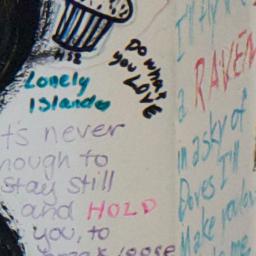 HSZ
DO WHAT
YOU LOVE
Lonely
Islander
t's never
nough to
stay still
and HOLD
you, to
loose
a RAVEN
in a sky of
Doves I'll
Make you
me